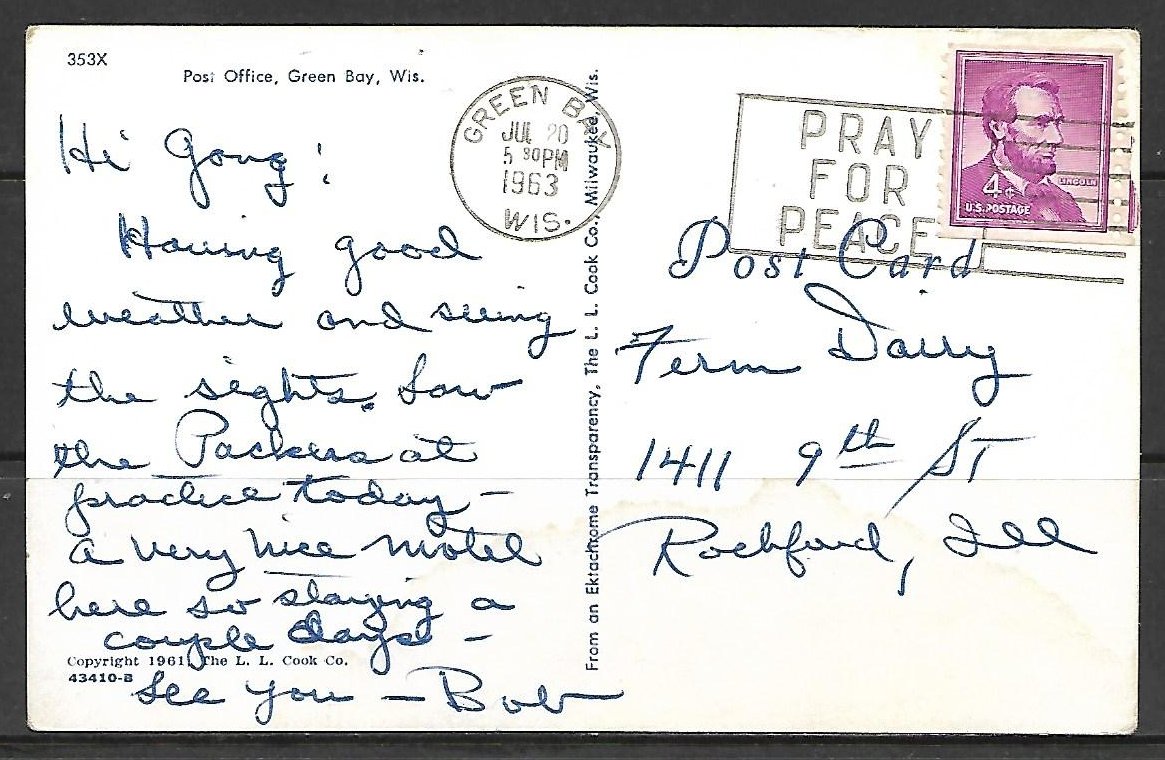 353X
Post Office, Green Bay, Wis.
Hi Gang!
Having good
weather and seeing
the sights. Saw
the Packers at
practice today –
a very nice motel
here so staying a
couple days –
See you – Bob
Copyright 1961, The L. L. Cook Co.
43410-B
From an Ektachrome Transparency, The L. L. Cook Co., Milwaukee, Wis.
GREEN BAY
JUL 20
5 30PM
1963
WIS.
PRAY
FOR
PEACE
LINCOLN
4¢
U.S. POSTAGE
Post Card
Ferm Dairy
1411 9th St
Rockford, Ill